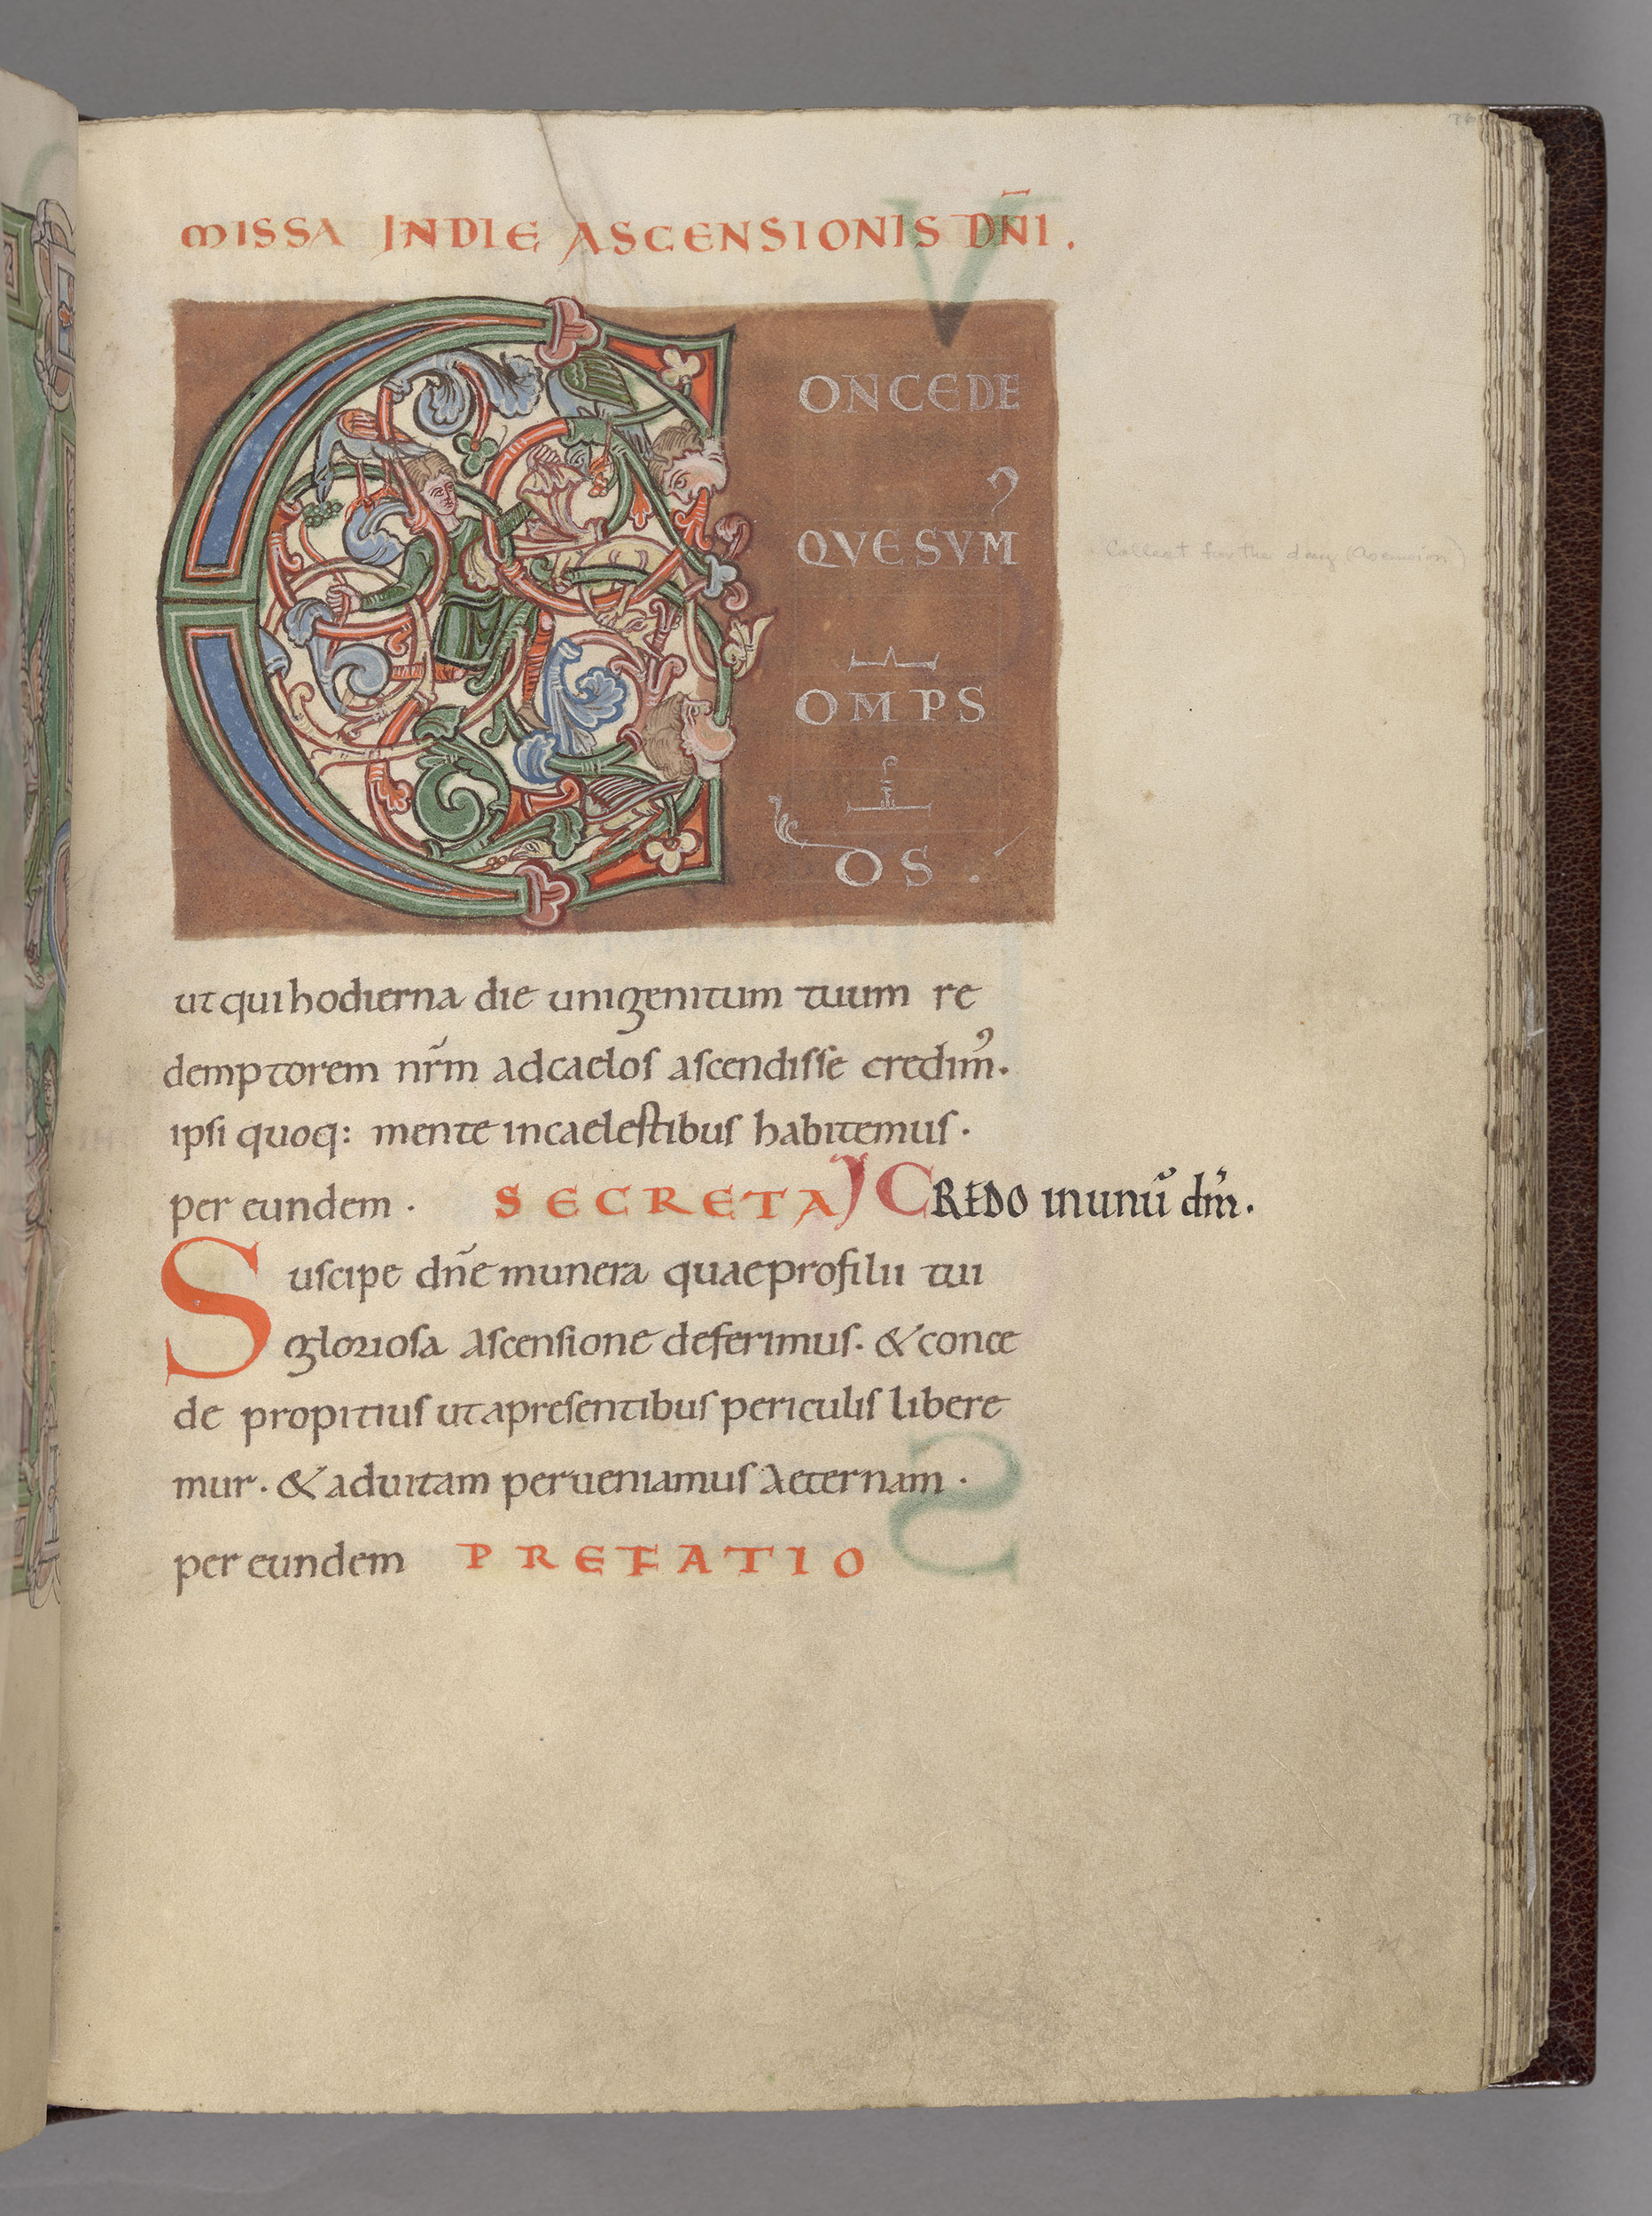 MISSA IN DIE ASCENSIONIS DN̄I.
CONCEDE
QVESVM꯰
OMPS
OS.
Collect for the day (Ascension)
ut qui hodierna die unigenitum tuum re
demptorem nr̄m ad caelos ascendisse credim᷒.
ipsi quoq: mente in caelestibus habitemus.
per eundem. SECRETA CREDO in unū dm̄.
Suscipe dn̄e munera quae pro filii tui
gloriosa ascensione deferimus. & conce
de propitius ut a presentibus periculis libere
mur. & ad uitam perueniamus aeternam.
per eundem PREFATIO